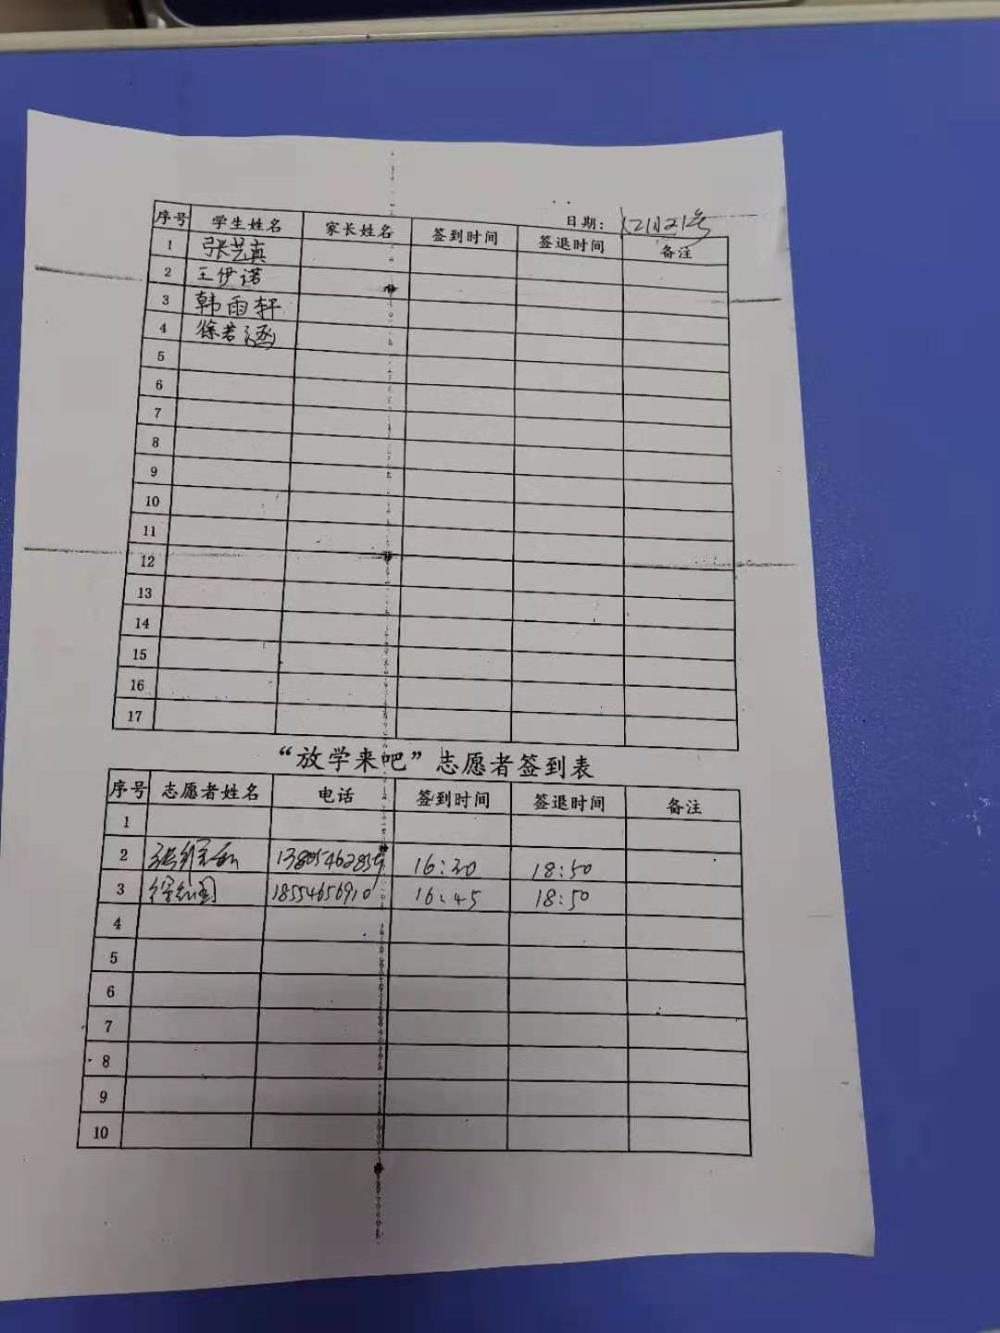 日期：12月21号
序号 学生姓名 家长姓名 签到时间 签退时间 备注
1 张艺真
2 王伊诺
3 韩雨轩
4 徐若涵
5
6
7
8
9
10
11
12
13
14
15
16
17
“放学来吧”志愿者签到表
序号 志愿者姓名 电话 签到时间 签退时间 备注
1
2 16:30 18:50
3 18554656910 16:45 18:50
4
5
6
7
8
9
10